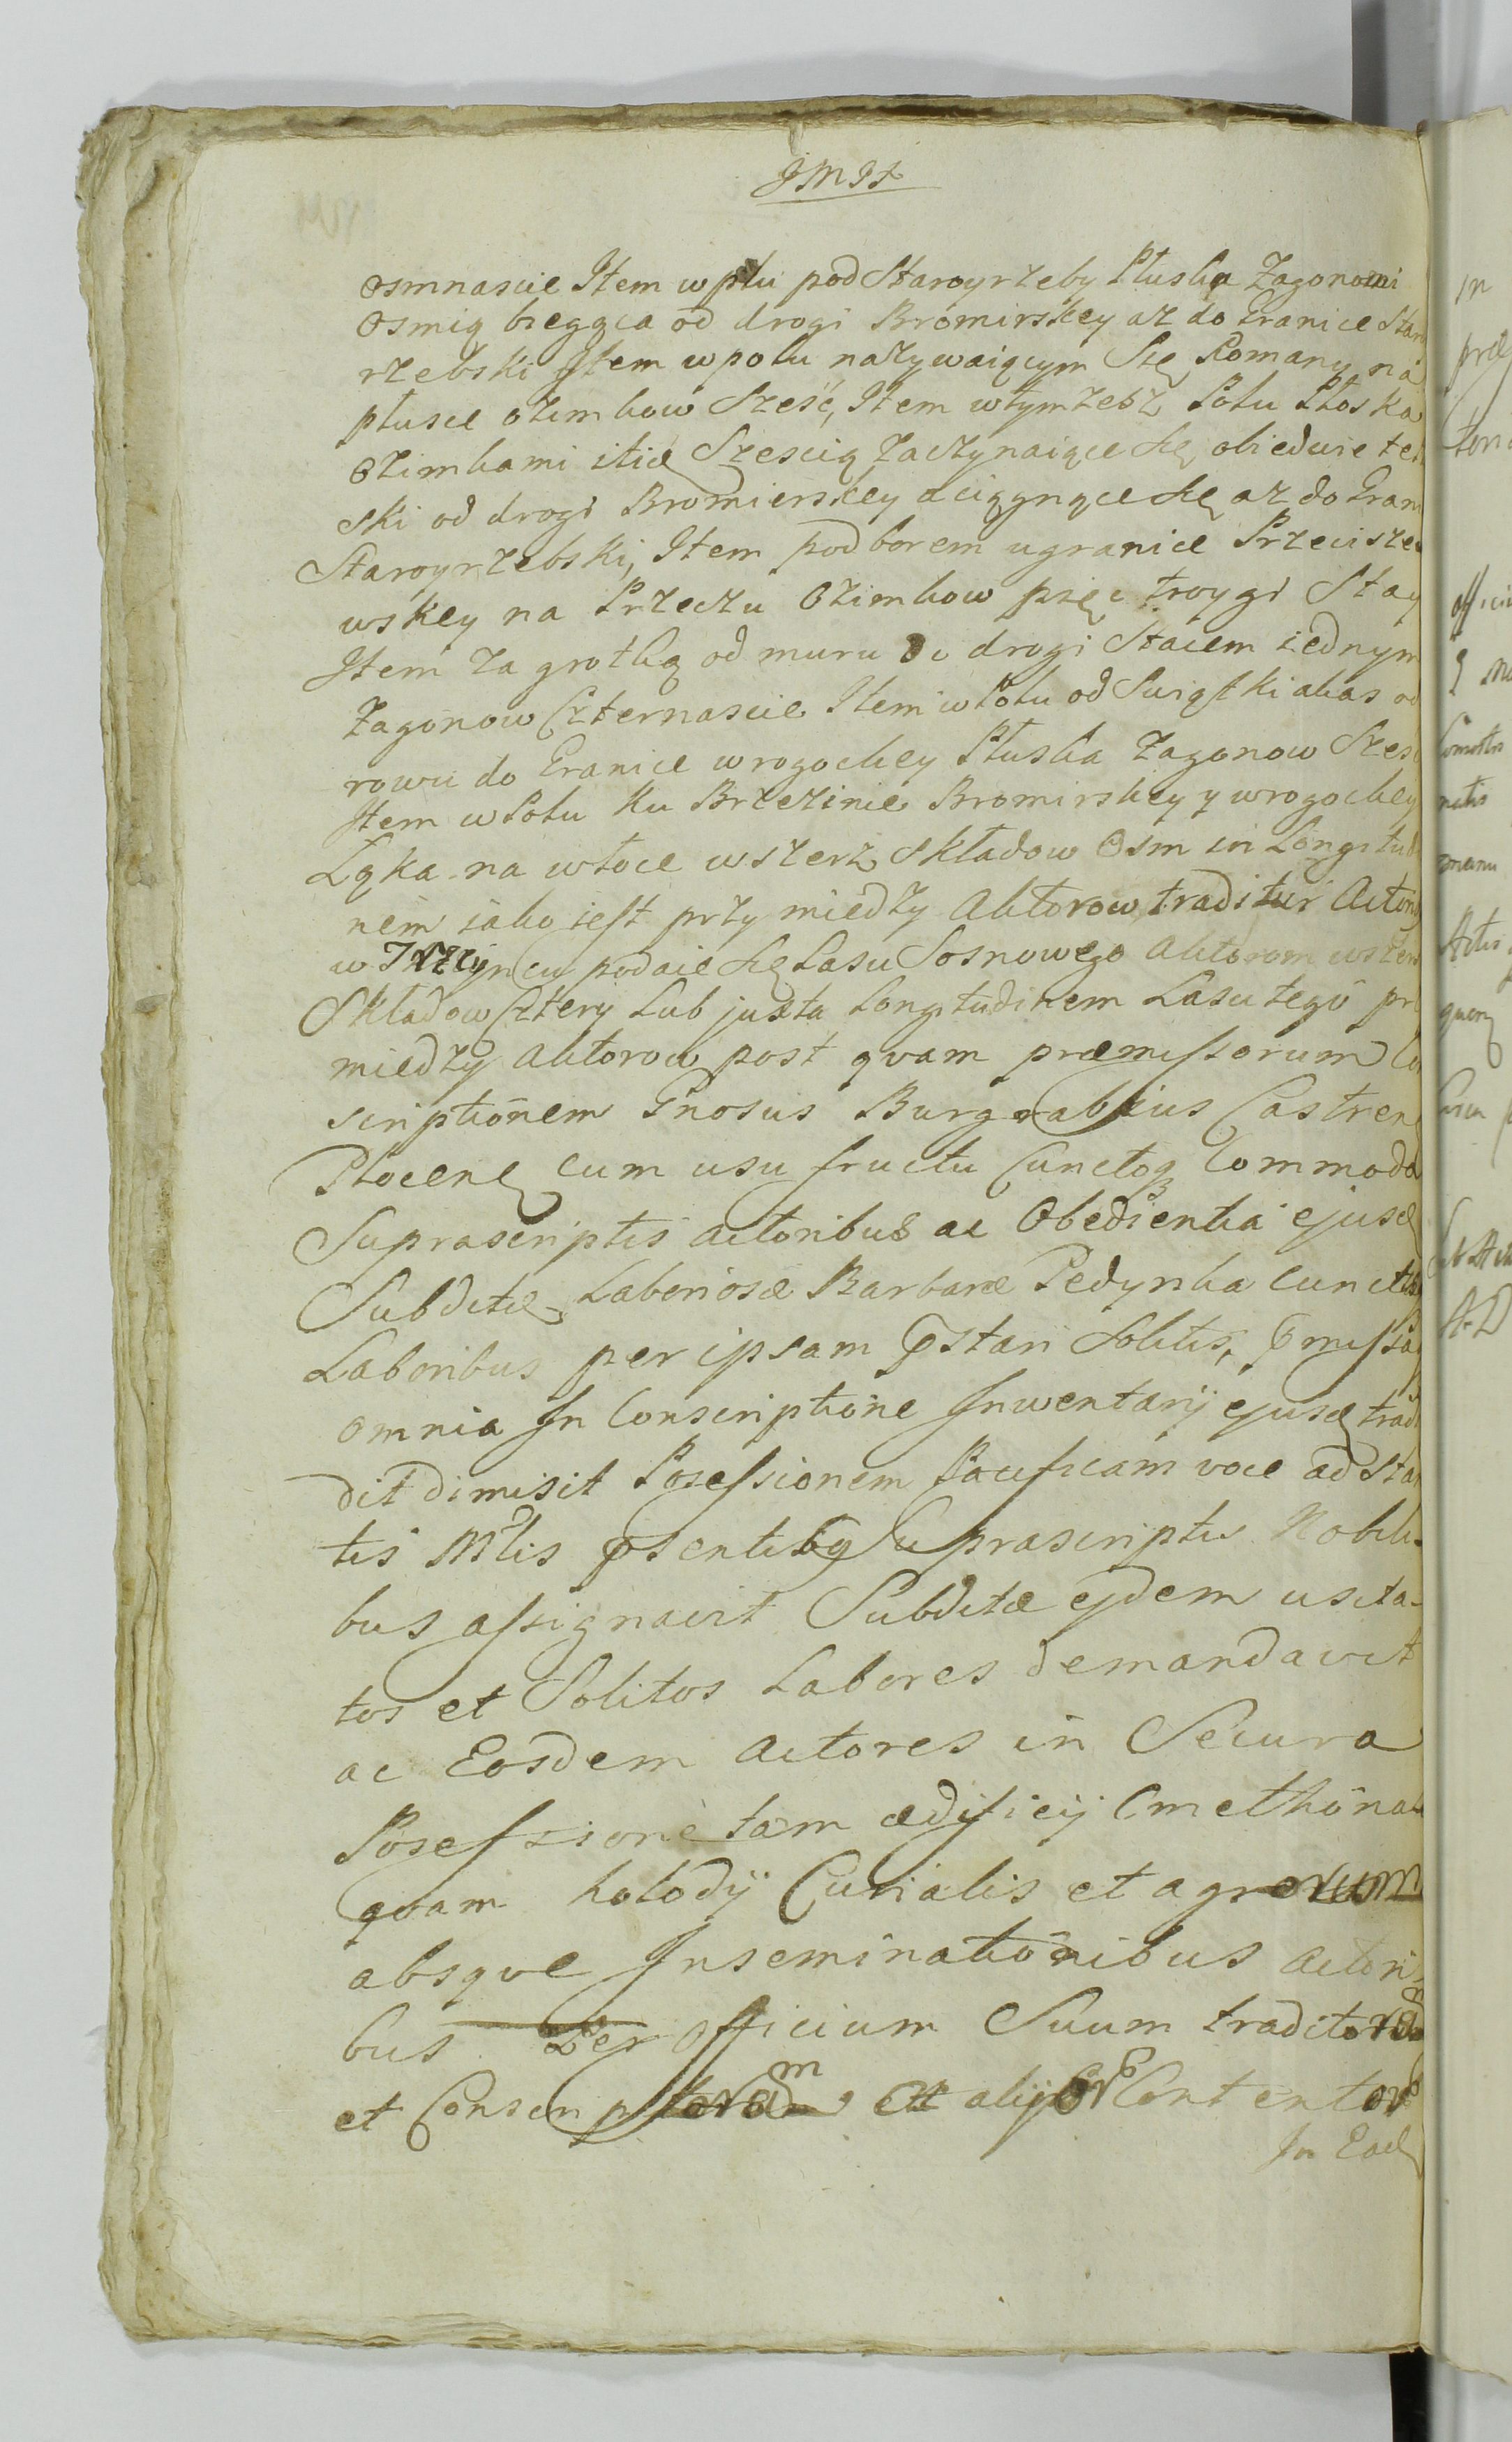 JMJt
osmnascie Item w polu pod Staroyrzeby Pluska Zagonami
Osmią biegąca od drogi Bromirskey az do Granice Staro
rzebski Item w polu nazywaiącym Się Romany na
plusce ozimkow Sześć, Item wtymzesz Polu Płoska
Ozimkami Sześcią zaczynaiące się obiedwie te
ski od drogi Bromierskey aciągnące się az do Gran
Staroyrzebski, Item pod borem ugranice Przecisze
wskey na Przeczu Ozimkow pięc troygi Stay
Item za grotką od muru do drogi Staiem iednym
Zagonow Czternascie Item w Polu od Swiąstki alias od
rowu do Granice wrogockey Pluska Zagonow Szesc
Item w Polu Ku Brzezinie Bromirskey y wrogockey
Łąka na włoce wszerz Składow Osm in Longitudi
nem iako iest przy miedzy Aktorow traditur Actori
w podaie się Lasu Sosnowego Aktorom wszerz
Składow Cztery Lub juxta Longitudinem Lasu tego pr
miedzy Aktorow post qvam præmissorum Co
scriptionem Gnosus Burgrabius Castren
Plocen cum usu fructu Cunctoq Commodo
Suprascriptis actoribus ac Obedientia ejusd
Subditæ Laboriosæ Barbaræ Pedynka Cunctis
Laboribus per ipsam pstari Solitis, pmissa
omnia In Conscriptione Inwentarij ejusd tradi
dit dimisit Possessionem Pacificam voce ad sta
tis Mtis pstentibq Suprascriptis Nobili
bus assignavit Subditæ ejdem usita
tos et Solitos Labores demandavit
ac Eosdem Actores in Secura
Possessione tam ædificij Cmethona
qvam holodij Curialis et agrorum
absqve Inseminationibus Actori
bus Per officium Suum traditor
et et alijor Contentor
In Ead